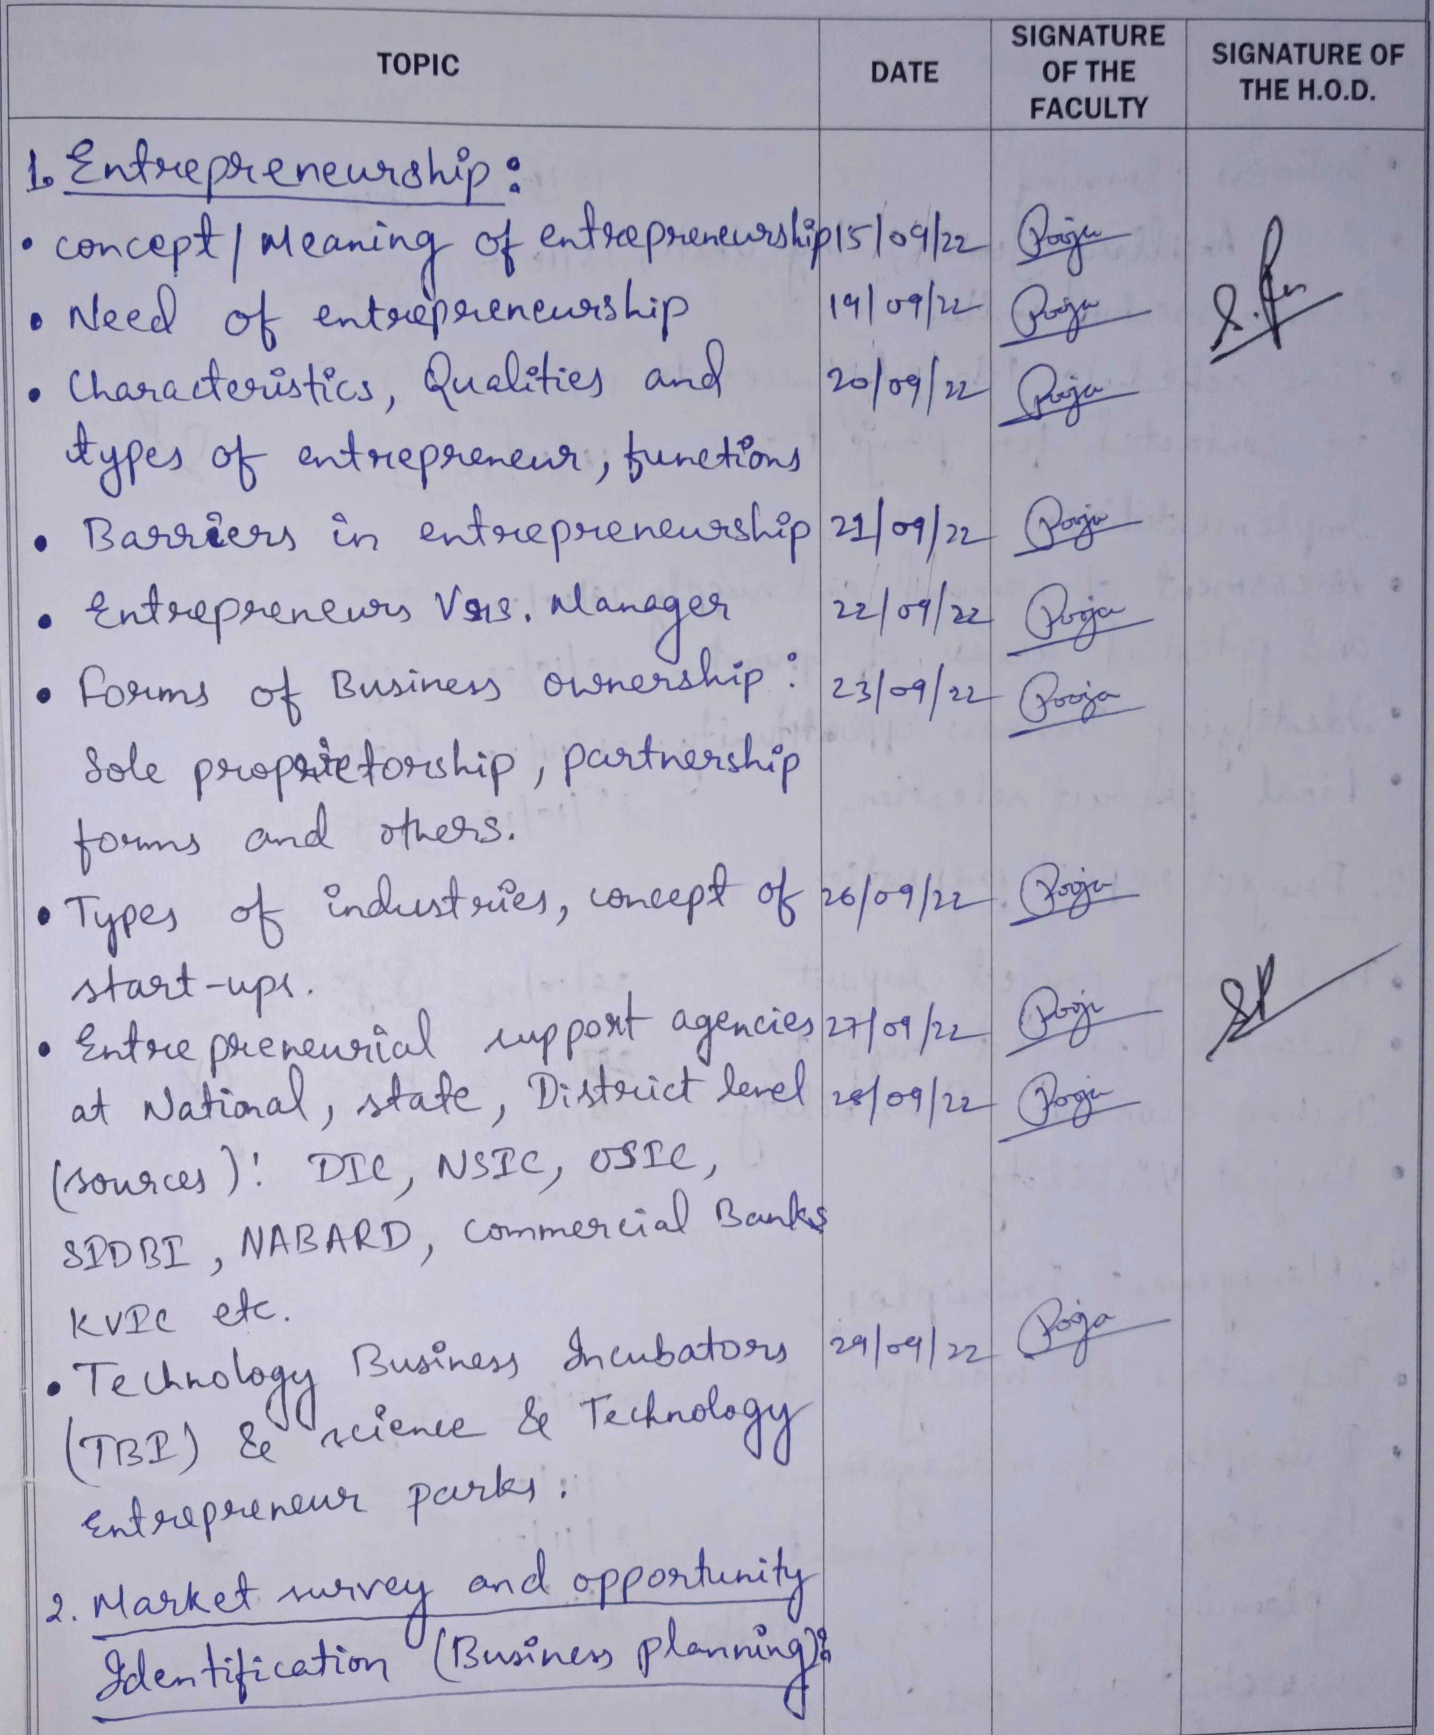 TOPIC DATE SIGNATURE OF THE FACULTY SIGNATURE OF THE H.O.D.
1. Entrepreneurship:
• concept/Meaning of entrepreneurship 15/09/22 Pooja
• Need of entrepreneurship 19/09/22 Pooja
• Characteristics, Qualities and 20/09/22 Pooja
types of entrepreneur, functions
• Barriers in entrepreneurship 21/09/22 Pooja
• Entrepreneurs Vrs. Manager 22/09/22 Pooja
• Forms of Business ownership: 23/09/22 Pooja
Sole proprietorship, partnership
forms and others.
• Types of industries, concept of 26/09/22 Pooja
start-ups.
• Entrepreneurial support agencies 27/09/22 Pooja
at National, state, District level 28/09/22 Pooja
(sources): DIC, NSIC, OSIC,
SIDBI, NABARD, Commercial Banks
KVIC etc.
• Technology Business Incubators 29/09/22 Pooja
(TBI) & science & Technology
Entrepreneur parks:
2. Market survey and opportunity
Identification (Business planning):